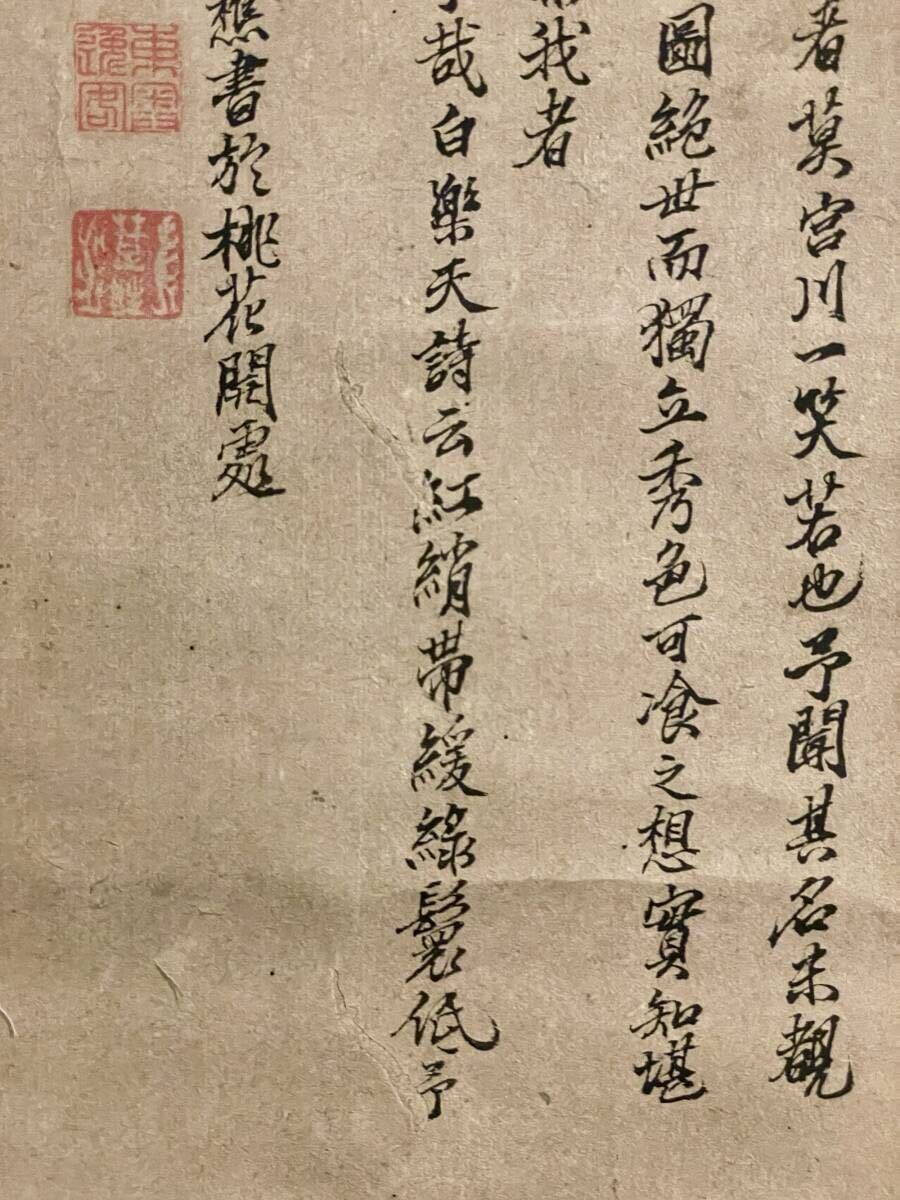 者莫宮川一笑若也予聞其名未覩
圖絕世而獨立秀色可飡之想實知堪
我者
哉白樂天詩云紅綃帶緩綠鬟低予
樵書於桃花開處